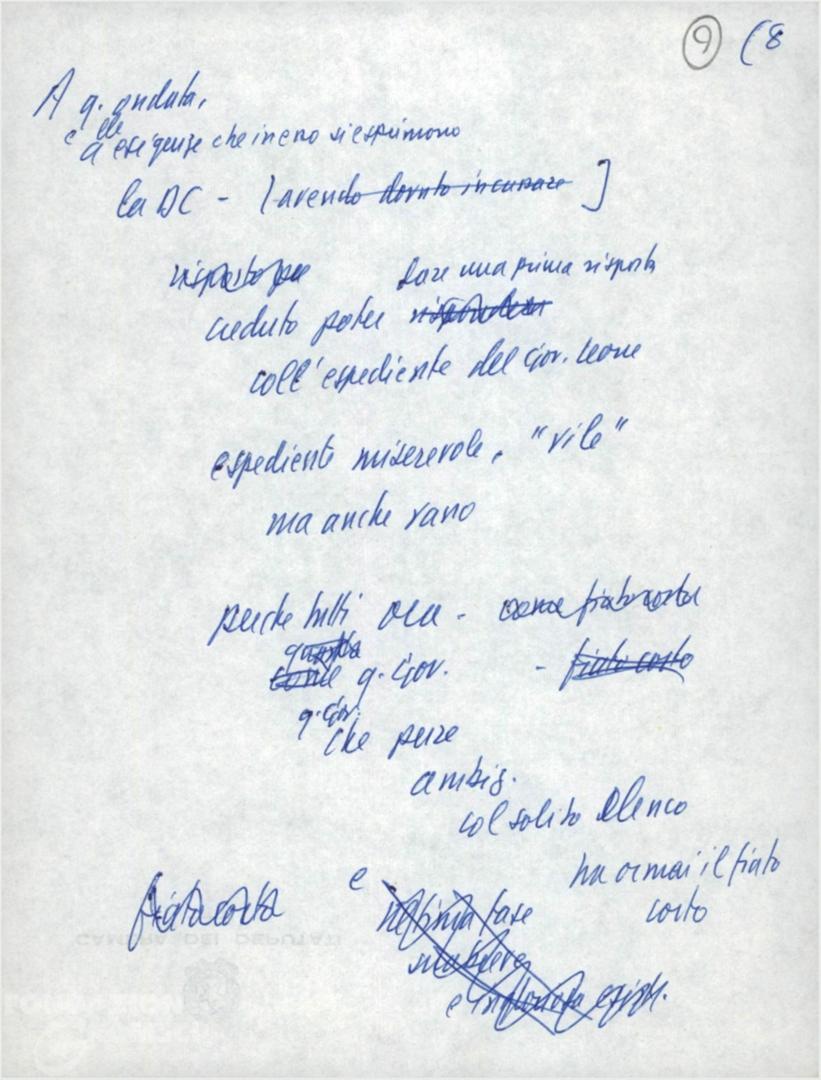 9 (8
A q. ondata,
e alle esigenze che in esso si esprimono
la DC - [avendo dovuto incassare]
risposto per dare una prima risposta
creduto poter rispondere
coll'espediente del Gov. Leone
espediente miserevole, "vile"
ma anche vano
perché tutti ora - come fiato corto
questo
come q. Gov. - fiato corto
q. Gov.
che pure
ambig.
col solito elenco
ha ormai il fiato
corto
fiato corto e
fase
e
CAMERA DEI DEPUTATI